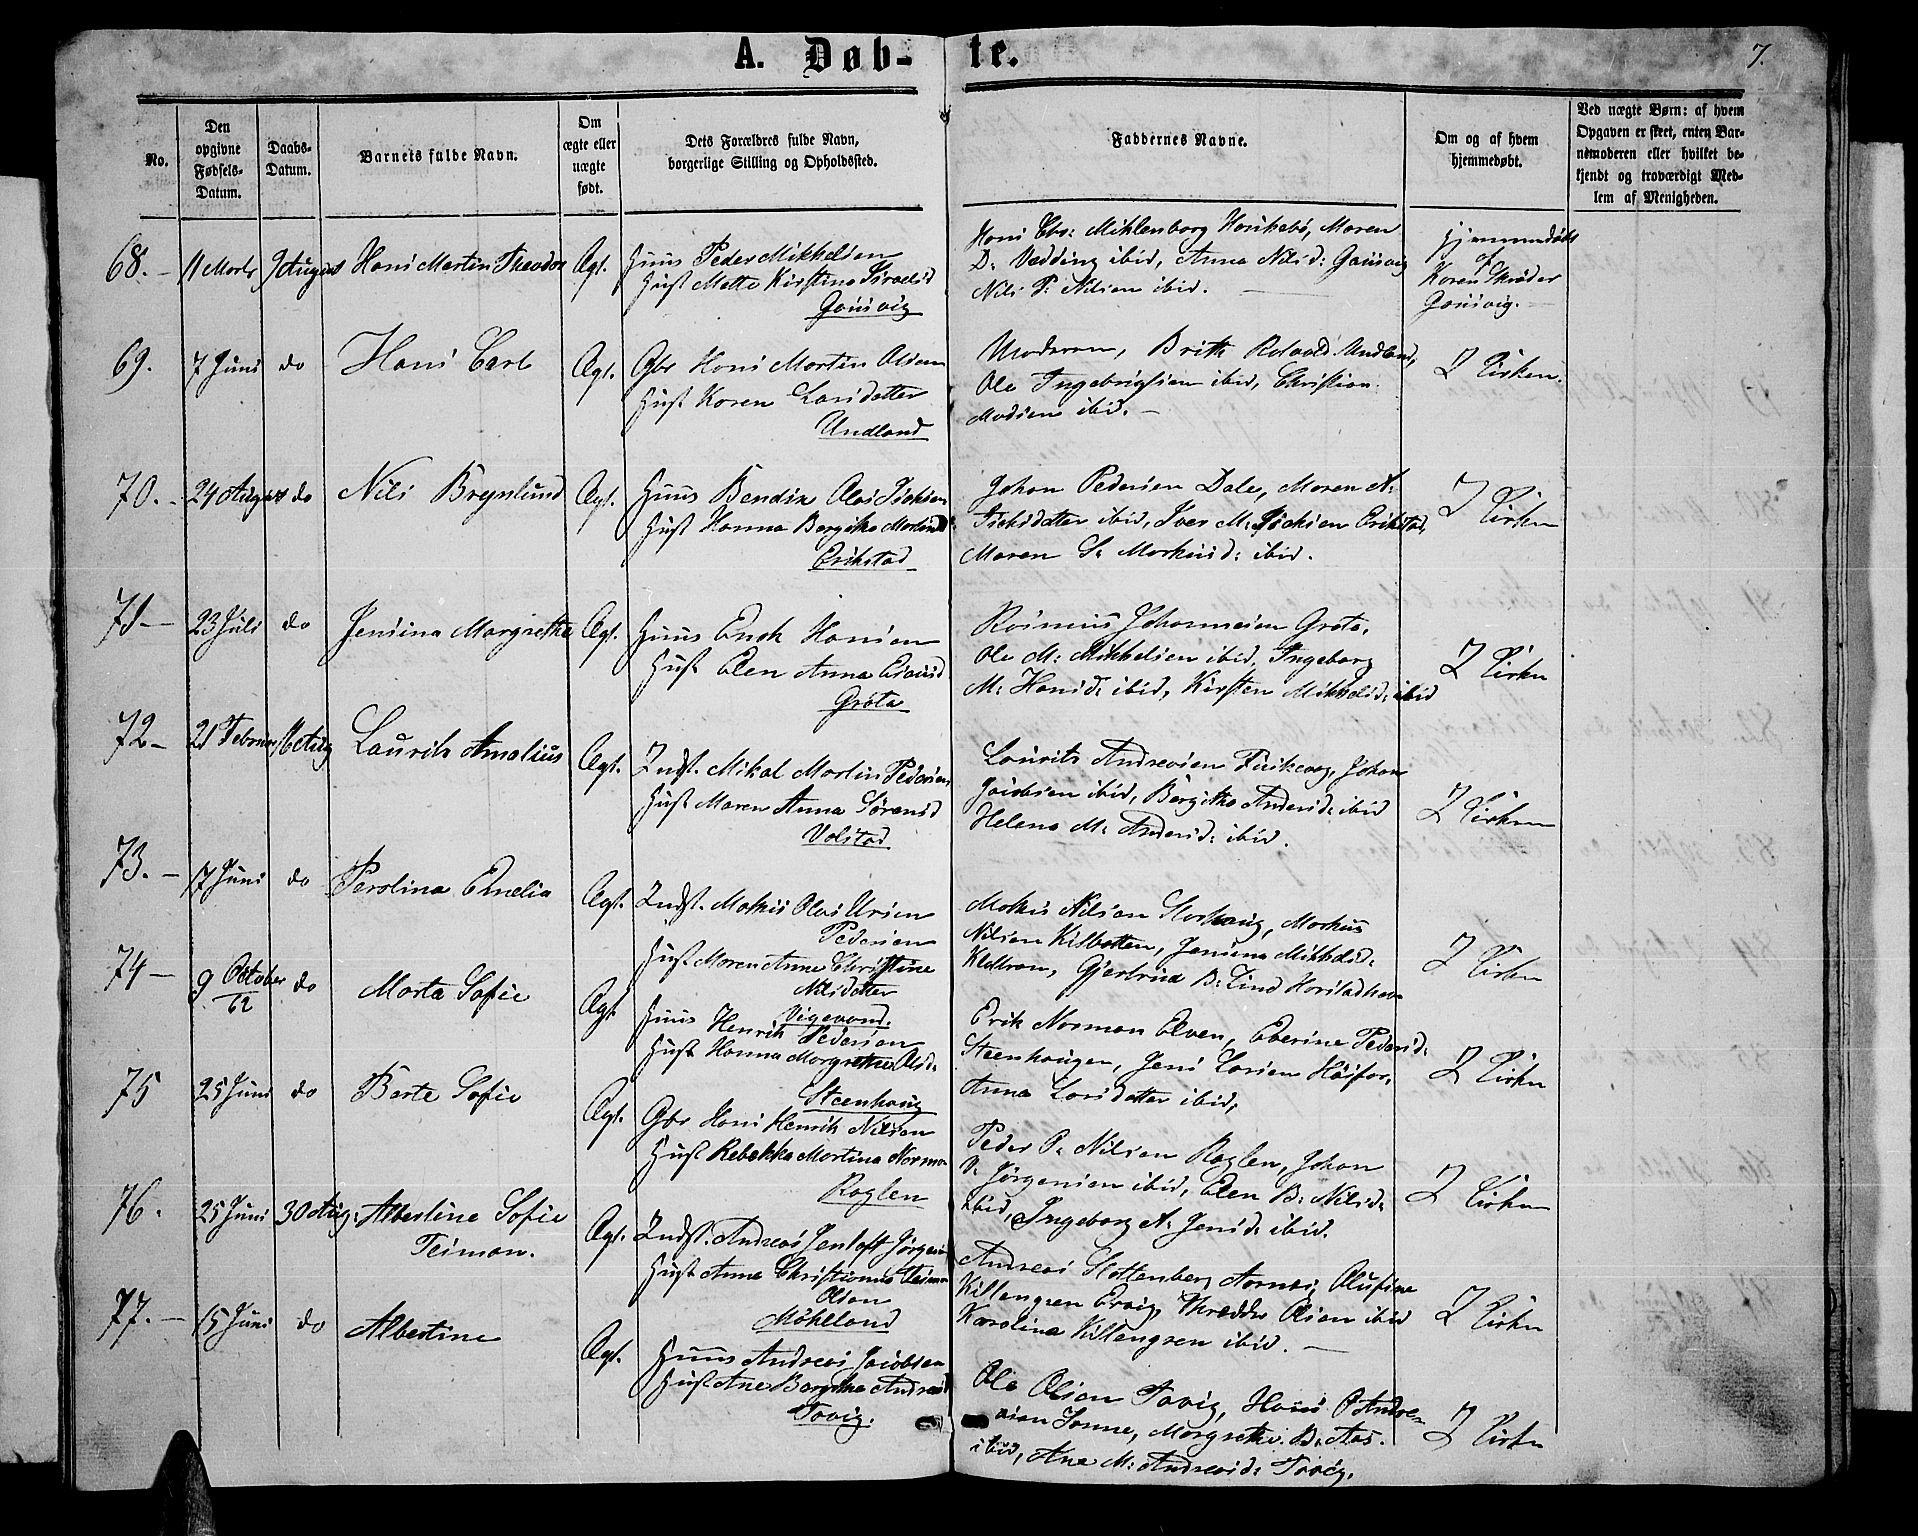 A. Døb-
te.
7.
No.
Den opgivne Fødsels-Datum.
Daabs-Datum.
Barnets fulde Navn.
Om ægte eller uægte født.
Dets Forældres fulde Navn, borgerlige Stilling og Opholdssted.
Faddernes Navne.
Om og af hvem hjemmedøbt.
Ved uægte Børn: af hvem Opgaven er skeet, enten Barnemoderen eller hvilket bekjendt og troværdigt Medlem af Menigheden.
68. 11 Marts 9 August Hans Martin Theodor Ægt.
Huus Peder Mikkelsen
Hust Mette Kirstine Israelsd
Gausvig
Hans Chr: Mihlenborg Harikebø, Maren
D: Vedding ibid, Anna Nilsd: Gausvig
Nils P: Nilsen ibid.
hjemmedøbt
af
Karen Skrøder
Gausvig.
69. 7 Juni do Hans Carl Ægt.
Gbr Hans Martin Olsen
Hust Karen Larsdatter
Undland
Moderen, Brith Undland,
Ole Ingebrigtsen ibid, Christian
Madsen ibid.
I Kirken.
70. 24 August do Nils Brynlund Ægt.
Huus Bendix Olai Isaksen
Hust Hanna Bergithe
Erikstad
Johan Pedersen Dale, Maren A:
Isaksdatter ibid, Iver M: Isaksen Erikstad,
Maren S: Markusd: ibid.
I Kirken
71 23 Juli do Jensina Margrethe Ægt.
Huus Enok Hansen
Hust Elen Anna Esaiasd
Grøta
Rasmus Johannesen Grøta,
Ole M: Mikkelsen ibid, Ingeborg
M: Hansd: ibid, Kirsten Mikkelsd: ibid
I Kirken
72 21 Februar 16 Aug Laurits Amalius Ægt.
Indst. Mikal Martin Pedersen
Hust Maren Anna Sørensd
Volstad
Laurits Andreasen Finkevog, Johan
Jacobsen ibid, Bergithe Andersd: ibid
Helena M: Andersd: ibid.
I Kirken
73. 17 Juni do Perolina Emelia Ægt.
Indst. Mathis Olai Ursen
Pedersen
Hust Maren Anne Christine
Nilsdatter
Vigevand.
Mathis Nilsen Storhaug, Markus
Nilsen Kilbotten, Jensina Mikkelsd:
Gjertrud B: Lind Harstadhavn
I Kirken
74 9 October 62 do Marta Sofie Ægt
Huus Henrik Pedersen
Hust Hanna Margrethe Olsd:
Steenhaug
Erik Norman Elven, Eberine Pedersd:
Steenhaugen, Jens Larsen
Anna Larsdatter ibid,
I Kirken
75 25 Juni do Berte Sofie Ægt.
Gbr Hans Henrik Nilsen
Hust Rebekka Martina Norman
Røglen
Peder P: Nilsen Røglen, Johan
V: Jørgensen ibid, Elen B: Nilsd:
ibid, Ingeborg A: Jensd: ibid.
I Kirken
76. 25 Juni 30 Aug: Albertine Sofie
Teiman. Ægt.
Indst. Andreas Jentoft
Hust Anne
Olsen
Møkeland
Andreas Slottenberg Aarnes, Olufine
Killengren Ervig, Olsen ibid
Karolina Killengren ibid.
I Kirken
77. 15 Juni do Albertine Ægt.
Huus Andreas Jacobsen
Hust Ane Bergithe Andreasd
Tovig.
Ole Olsen Tovig, Hans P Andre-
asen Sonne, Margrethe B: Aas.
ibid, Ane M: Andreasd: Tovig.
I Kirken